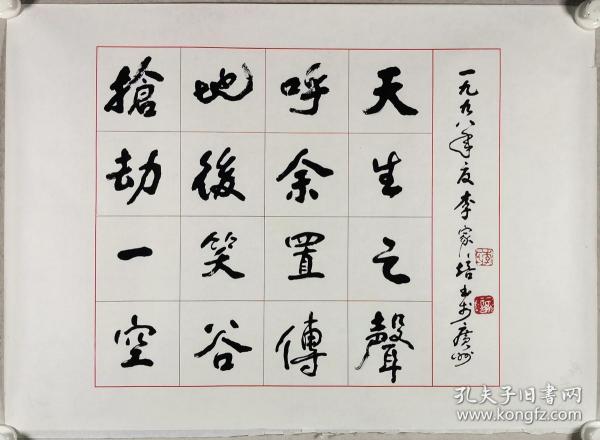 搶地呼天
劫後余生
一笑置之
空谷傳聲
一九九八年夏李家培书於廣州
孔夫子旧书网
www.kongfz.com